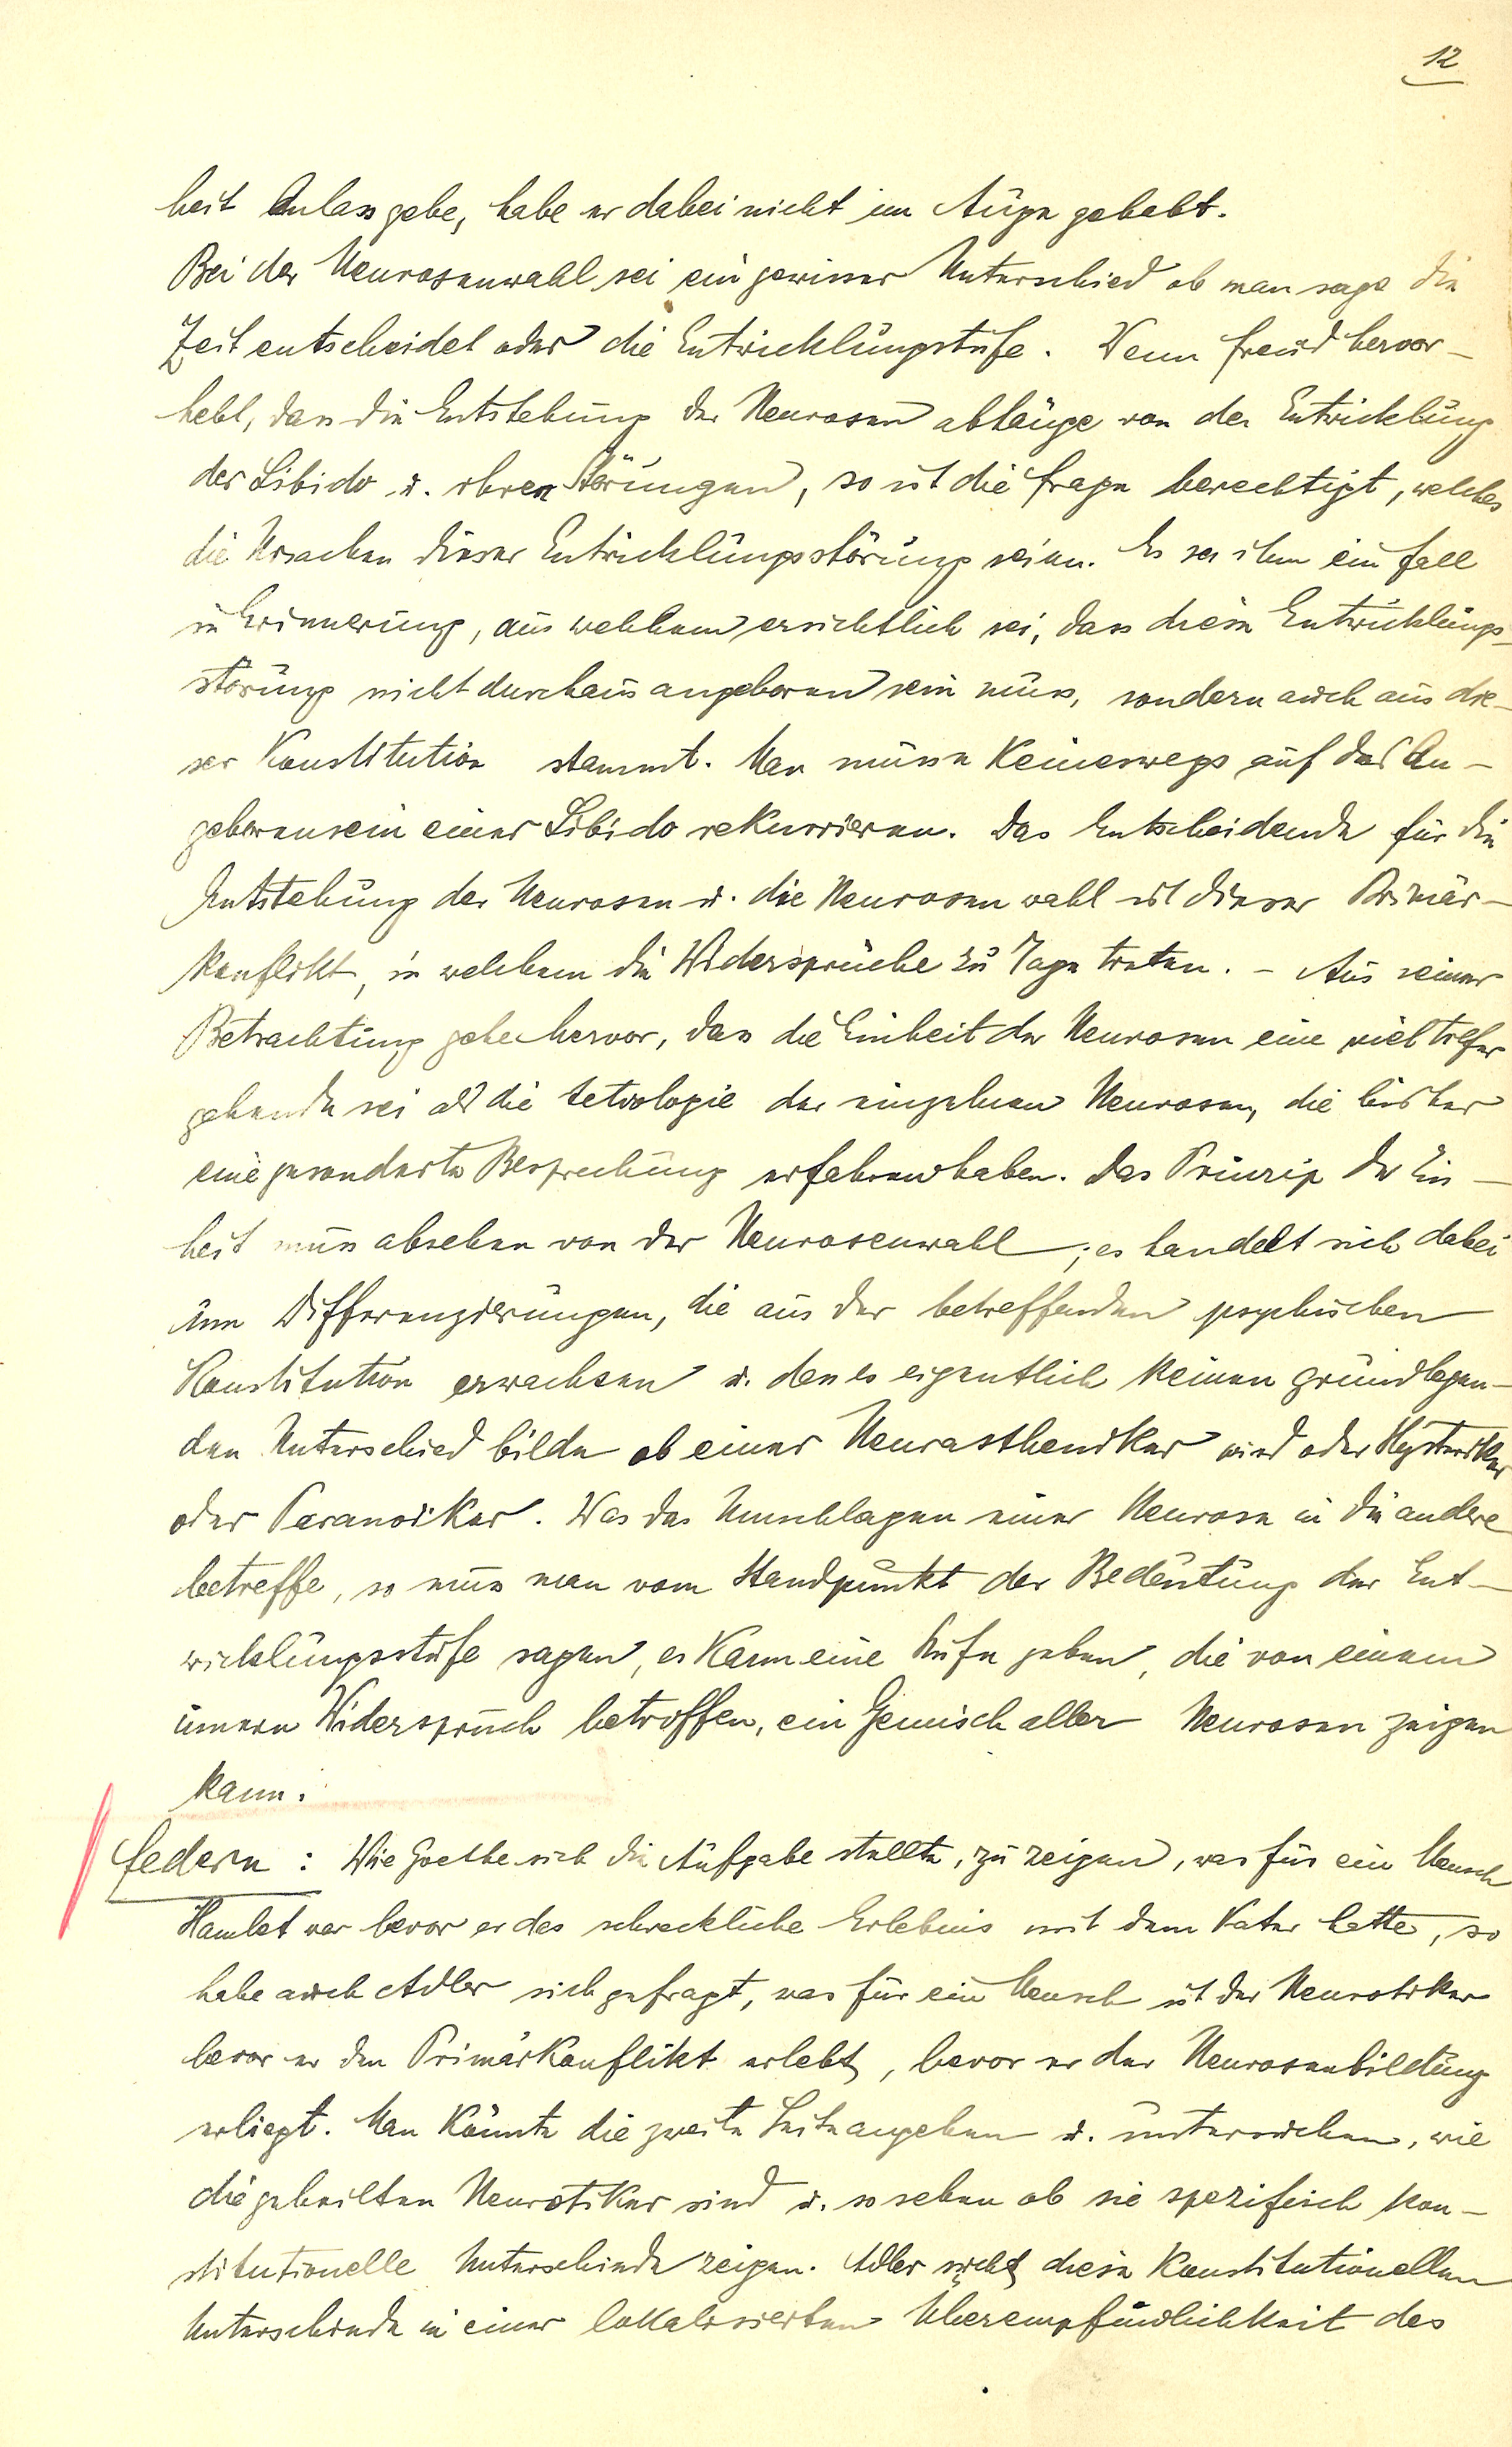 12
heit Anlass gebe, habe er dabei nicht im Auge gehabt.
Bei der Neurosenwahl sei ein gewisser Unterschied ob man sage die
Zeit entscheidet oder die Entwicklungstufe. Wenn Freud hervor-
hebt, dass die Entstehung der Neurosen abhänge von der Entwicklung
der Libido u. ihren Störungen, so ist die Frage berechtigt, welches
die Ursachen dieser Entwicklungsstörung seien. Es sei ihm ein Fall
in Erinnerung, aus welchem ersichtlich sei, dass diese Entwicklungs-
störung nicht durchaus angeboren sein muss, sondern auch aus die-
ser Konstitution stammt. Man müsse keineswegs auf das An-
geborensein einer Libido rekurrieren. Das Entscheidende für die
Entstehung der Neurosen u. die Neurosenwahl ist dieser Primär-
konflikt, in welchem die Widersprüche zu Tage treten. - Aus seiner
Betrachtung gehe hervor, dass die Einheit der Neurosen eine viel tiefer
gehende sei als die der einzelnen Neurosen, die bisher
eine gesonderte Besprechung erfahren haben. Das Prinzip der Ein-
heit muss absehen von der Neurosenwahl; es handelt sich dabei
um Differenzierungen, die aus der betreffenden psychischen
Konstitution erwachsen u. den es eigentlich keinen grundlegen-
den Unterschied bilde ob einer Neurastheniker wird oder Hysteriker
oder Paranoiker. Was das Umschlagen einer Neurose in die andere
betreffe, so muss man vom Standpunkt der Bedeutung der Ent-
wicklungsstufe sagen, es kann eine Stufe geben, die von einem
innern Widerspruch betroffen, ein Gemisch aller Neurosen zeigen
kann.
Federn: Wie Goethe sich die Aufgabe stellte, zu zeigen, was für ein Mensch
Hamlet war bevor er das schreckliche Erlebnis mit dem Vater hatte, so
habe auch Adler sich gefragt, was für ein Mensch ist der Neurotiker
bevor er den Primärkonflikt erlebt, bevor er der Neurosenbildung
erliegt. Man könnte die zweite Seite angehen u. untersuchen, wie
die geheilten Neurotiker sind u. so sehen ob sie spezifisch kon-
stitutionelle Unterschiede zeigen. Adler sucht diese konstitutionellen
Unterschiede in einer lokalisierten Überempfindlichkeit des